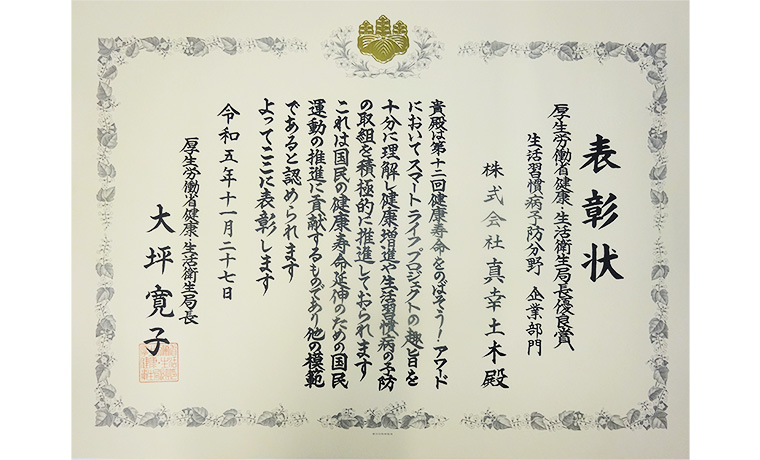 表彰状
厚生労働省健康・生活衛生局長優良賞
生活習慣病予防分野 企業部門
株式会社 真幸土木 殿
貴殿は第十二回健康寿命をのばそう！アワード
においてスマートライフプロジェクトの趣旨を
十分に理解し健康増進や生活習慣病の予防
の取組を積極的に推進しておられます
これは国民の健康寿命延伸のための国民
運動の推進に貢献するものであり他の模範
であると認められます
よってここに表彰します
令和五年十一月二十七日
厚生労働省健康・生活衛生局長
大坪寛子